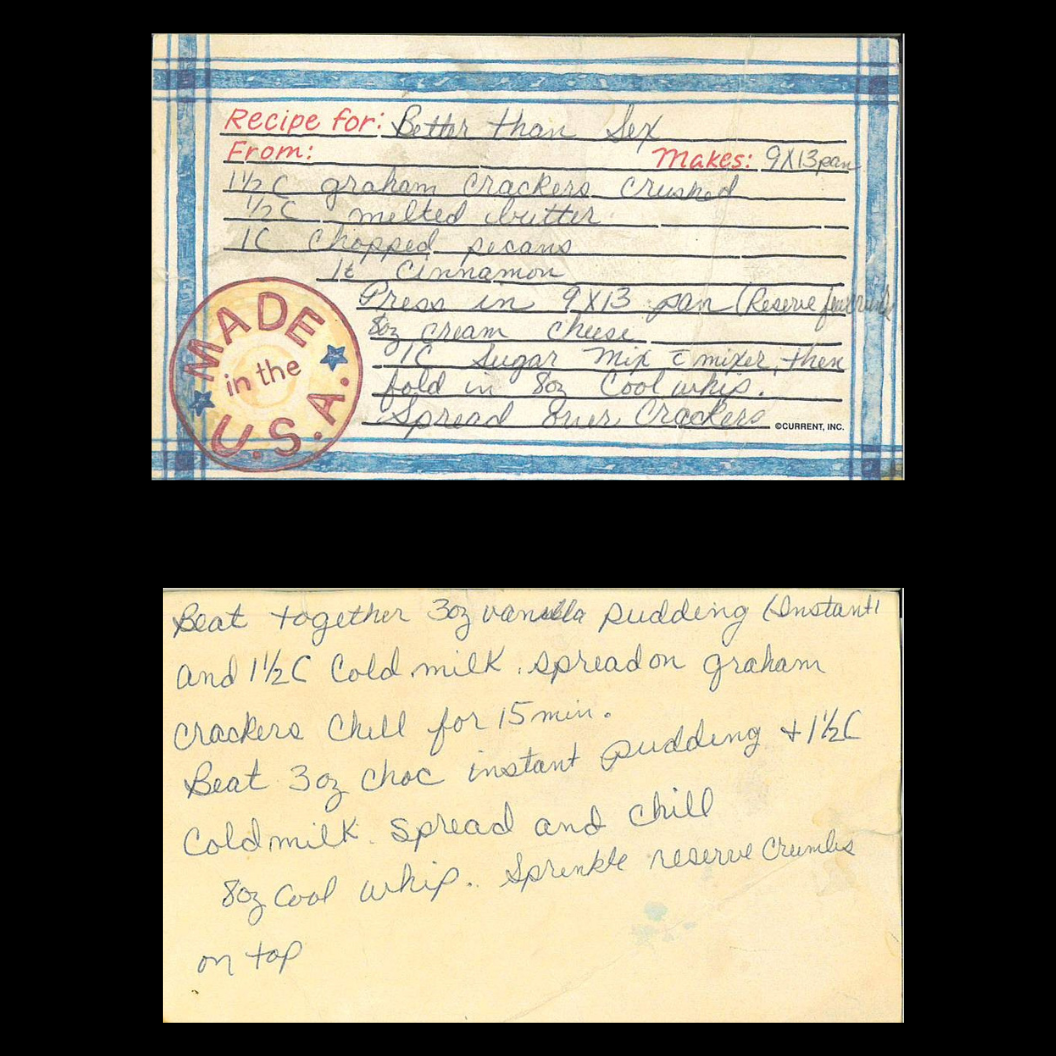 Recipe for: Better than Sex
From: Makes: 9X13pan
1½ C graham crackers crushed
½ C melted butter
1C Chopped pecans
1t Cinnamon
Press in 9X13 pan (Reserve few
8oz cream cheese
1C Sugar Mix c̄ mixer, then
fold in 8oz Cool whip.
Spread over Crackers
©CURRENT, INC.
MADE
in the
U.S.A.
Beat together 3oz vanilla pudding (Instant)
and 1½C Cold milk. Spread on graham
crackers Chill for 15 min.
Beat 3oz choc instant pudding + 1½C
Cold milk. Spread and Chill
8oz Cool whip.. Sprinkle reserve Crumbs
on top